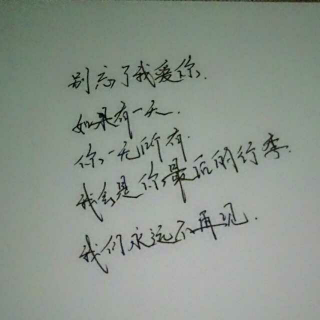 别忘了我爱你.
如果有一天.
你一无所有.
我会是你最后的行李.
我们永远不再见.